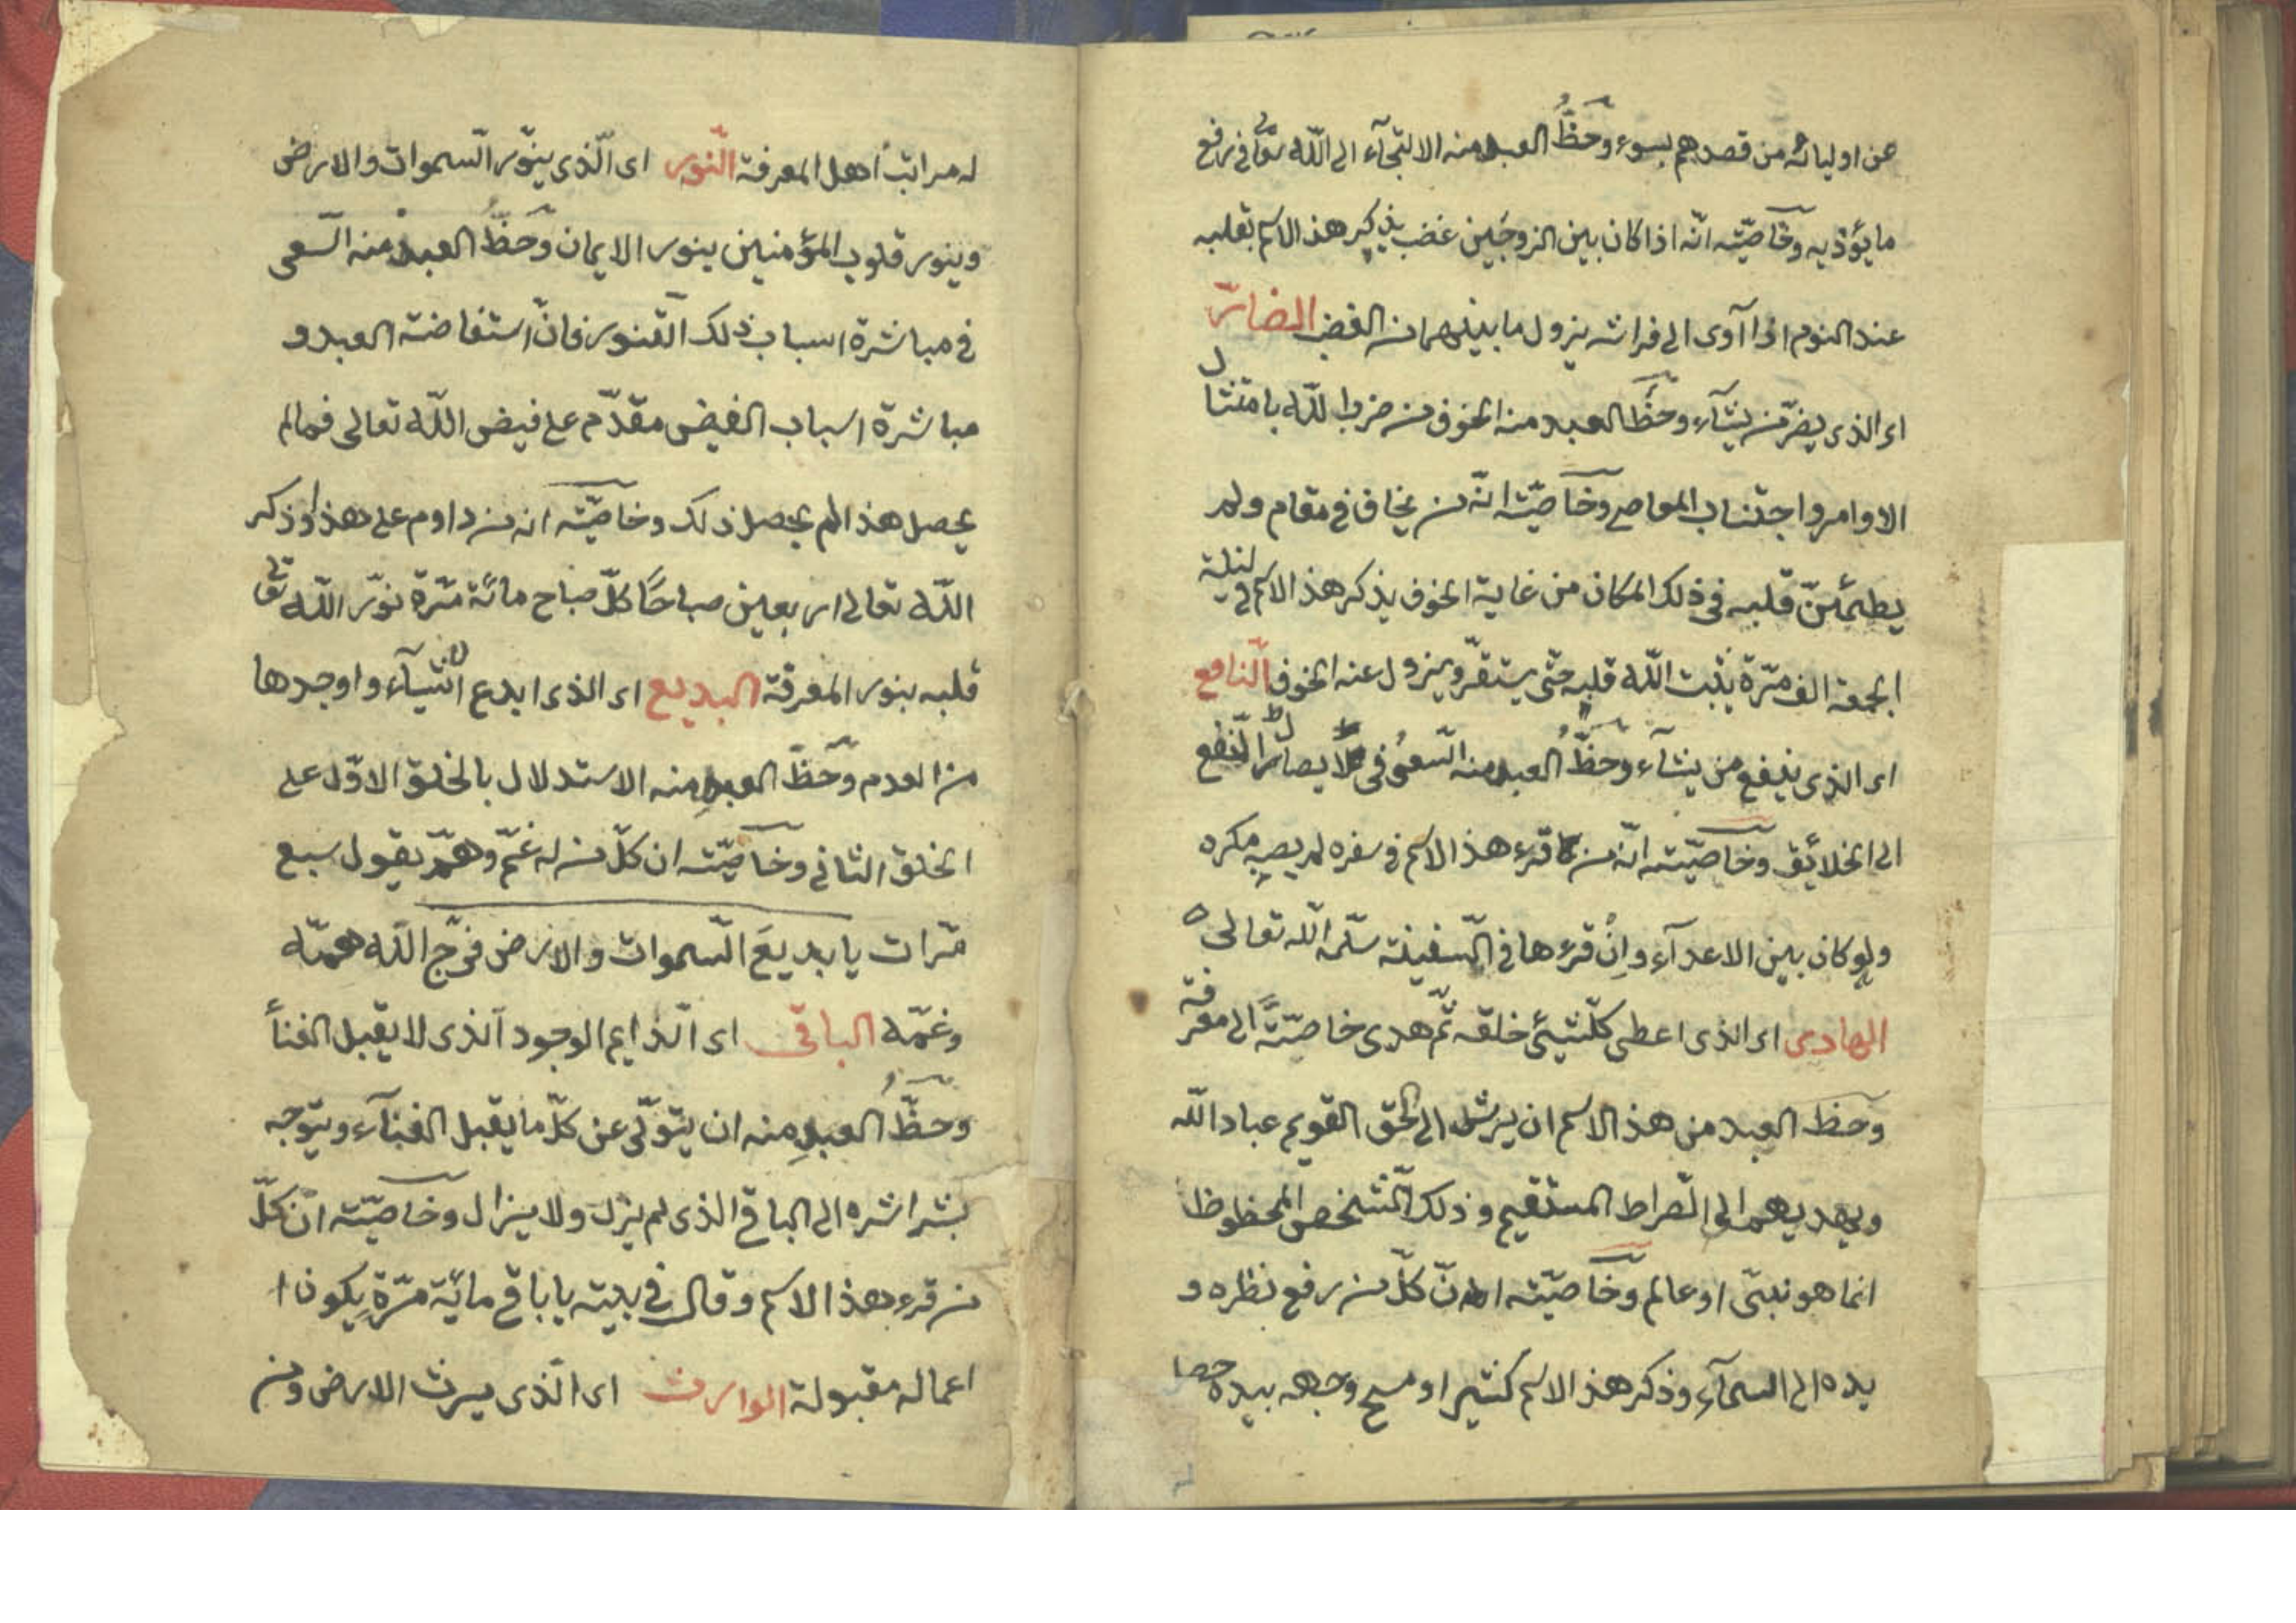 عن اوليائه من قصدهم بسوء وحظّ العبد منه الالتجآء الى اللّه تعالى في رفع
ما يؤذيه وخاصّيّته انّه اذا كان بين الزوجين غضب يذكر هذ الاسم بقلبه
عند النوم اذا آوى الى فراشه يزول ما بينهما من الغضب الضارّ
اى الذى يضرّ من يشآء وحظّ العبد منه الخوف من ضر اللّه بامتثال
الاوامر واجتناب المعاصى وخاصّيّته انّه من يخاف في مقام ولم
يطمئنّ قلبه في ذلك المكان من غاية الخوف يذكر هذ الاسم في ليلة
الجمعة الف مرّة يثبت اللّه قلبه حتّى يستقرّ ويزول عنه الخوف النّافع
اى الذى ينفع من يشآء وحظّ العبد منه السّعى في ايصال النّفع
الى الخلائق وخاصّيّته انّه من قرء هذ الاسم في سفره لم يصبه مكره
ولو كان بين الاعدآء وانْ قرءها في السّفينة سلّمه اللّه تعالى
الهادى اى الذى اعطى كلّ شيئ خلقه ثمّ هدى خاصّته الى معرفة
وحظ العبد من هذ الاسم ان يرشد الى الحق القويم عباد اللّه
ويهديهم الى الصّراط المستقيم وذلك الشّخص المحظوظ
انما هو نبىّ او عالم وخاصّيّته انّ كلّ من رفع نظره و
يده الى السمآء وذكر هذ الاسم كثيرا ومسح وجهه بيده حصل
له مراتب اهل المعرفة النّور اى الّذى ينوّر السّموات والارض
وينور قلوب المؤمنين بنور الايمان وحظّ العبد منه السّعى
في مباشرة اسباب ذلك التّنوير فانّ استفاضة العبد و
مباشرة اسباب الفيض مقدّم على فيض اللّه تعالى فما لم
يحصل هذا لم يحصل ذلك وخاصّيّته انه من داوم على هذا وذكر
اللّه تعالى اربعين صباحًا كلّ صباح مائة مرّة نوّر اللّه تعالى
قلبه بنور المعرفة البديع اى الذى ابدع الاشيآء واوجدها
من العدم وحظّ العبدِ منه الاستدلال بالخلق الاوّل على
الخلق الثانى وخاصّيّته ان كلّ من له غمّ وهمّ يقول سبع
مرّات يا بديعَ السّموات والارض فرّج اللّه همّه
وغمّه الباقى اى الّدايم الوجود الّذى لا يقبل الفنأ
وحظُّ العبدِ منه ان يتولّى عن كلّ ما يقبل الفنآء ويتوجه
بشراشره الى الباقى الذى لم يزل ولا يزال وخاصّيّته انّ كلّ
من قرء هذا الاسم وقال في بيته يا باقى مائة مرّةٍ يكون
اعماله مقبولة الوارث اى الّذى يرث الارض ومن